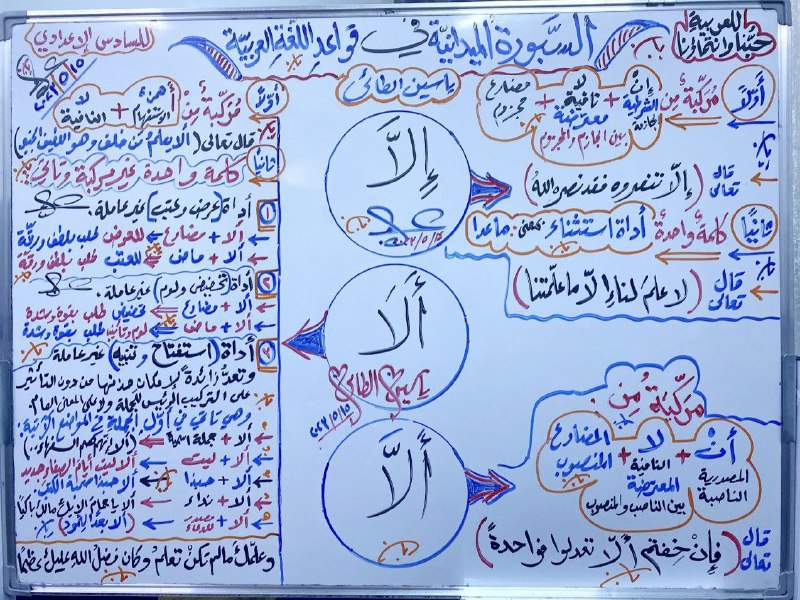 للعربية
حبّنا وانتماؤنا
السبورة الميدانية في قواعد اللغة العربية
للسادس الإعدادي
ياسين الطائي
أولاً
مُركّبة مِن
إنْ الشرطية الجازمة + لا نافية معترضة بين الجازم والمجزوم + مضارع مجزوم
قال تعالى
(إلّا تنصروه فقد نصره الله)
ثانياً
كلمة واحدة أداة استثناء بمعنى: ماعدا
قال تعالى
(لا علمَ لنا إلّا ما علّمتنا)
إِلَّا
٢٠٢٢/٥/١٥
أَلَا
ياسين الطائي
٢٠٢٢/٥/١٥
أَلَّا
مركّبة مِن:
أنْ المصدرية الناصبة + لا النافية المعترضة بين الناصب والمنصوب + المضارع المنصوب
قال تعالى
(فإنْ خفتم ألّا تعدلوا فواحدةً)
أولاً
مُركّبة مِن
أ همزة الاستفهام + لا النافية
قال تعالى (ألا يعلم من خلق وهو اللطيف الخبير)
ثانياً
كلمة واحدة غير مركبة وتأتي:
١ أداة (عرض وعتب) غير عاملة.
ألا + مضارع للعرض طلب بلطف ورقّة
ألا + ماضٍ للعتب طلب بلطف ورقة
٢ أداة (تحضيض ولوم) غير عاملة.
ألا + مضارع تحضيض طلب بقوة وشدة
ألا + ماضٍ لوم وتأنيب طلب بقوة وشدة
٣ أداة (استفتاح وتنبيه) غير عاملة
وتعدُّ زائدة إذ بإمكان حذفها من دون التأثير
على التركيب الرئيس للجملة ولا على المعنى العام
وهي تأتي في أول الجملة في المواضع الآتية:
ألا + جملة اسمية (ألا إنّهم هم السفهاء)
ألا + ليت ألا ليت أيام الصفاء جديد
ألا + حبذا ألا حبذا
ألا + نداء
ألا + مصدر للدعاء (ألا بعداً لثمود)
وعلّمك مالم تكن تعلم وكان فضل الله عليك عظيما